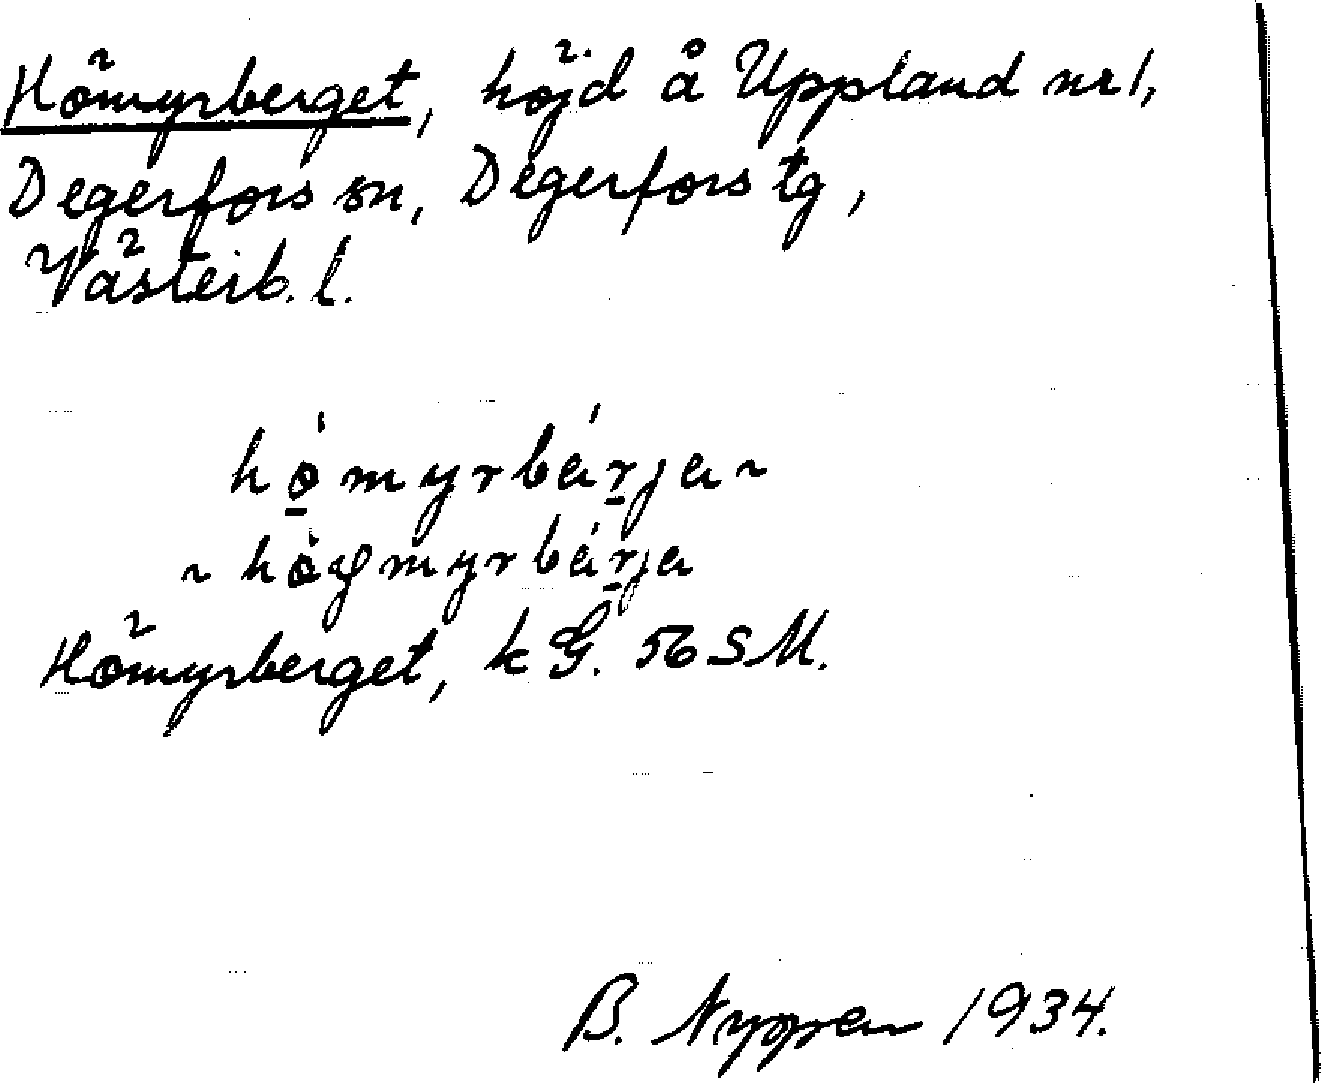 Hömyrberget, höjd å Uppland nr 1,
Degerfors sn, Degerfors tg,
Västerb. l.
hǫ́myrbárja ~
~ hǫ̀gmyrbárja
Hömyrberget, k G. 56 SM.
B. Nyppen 1934.